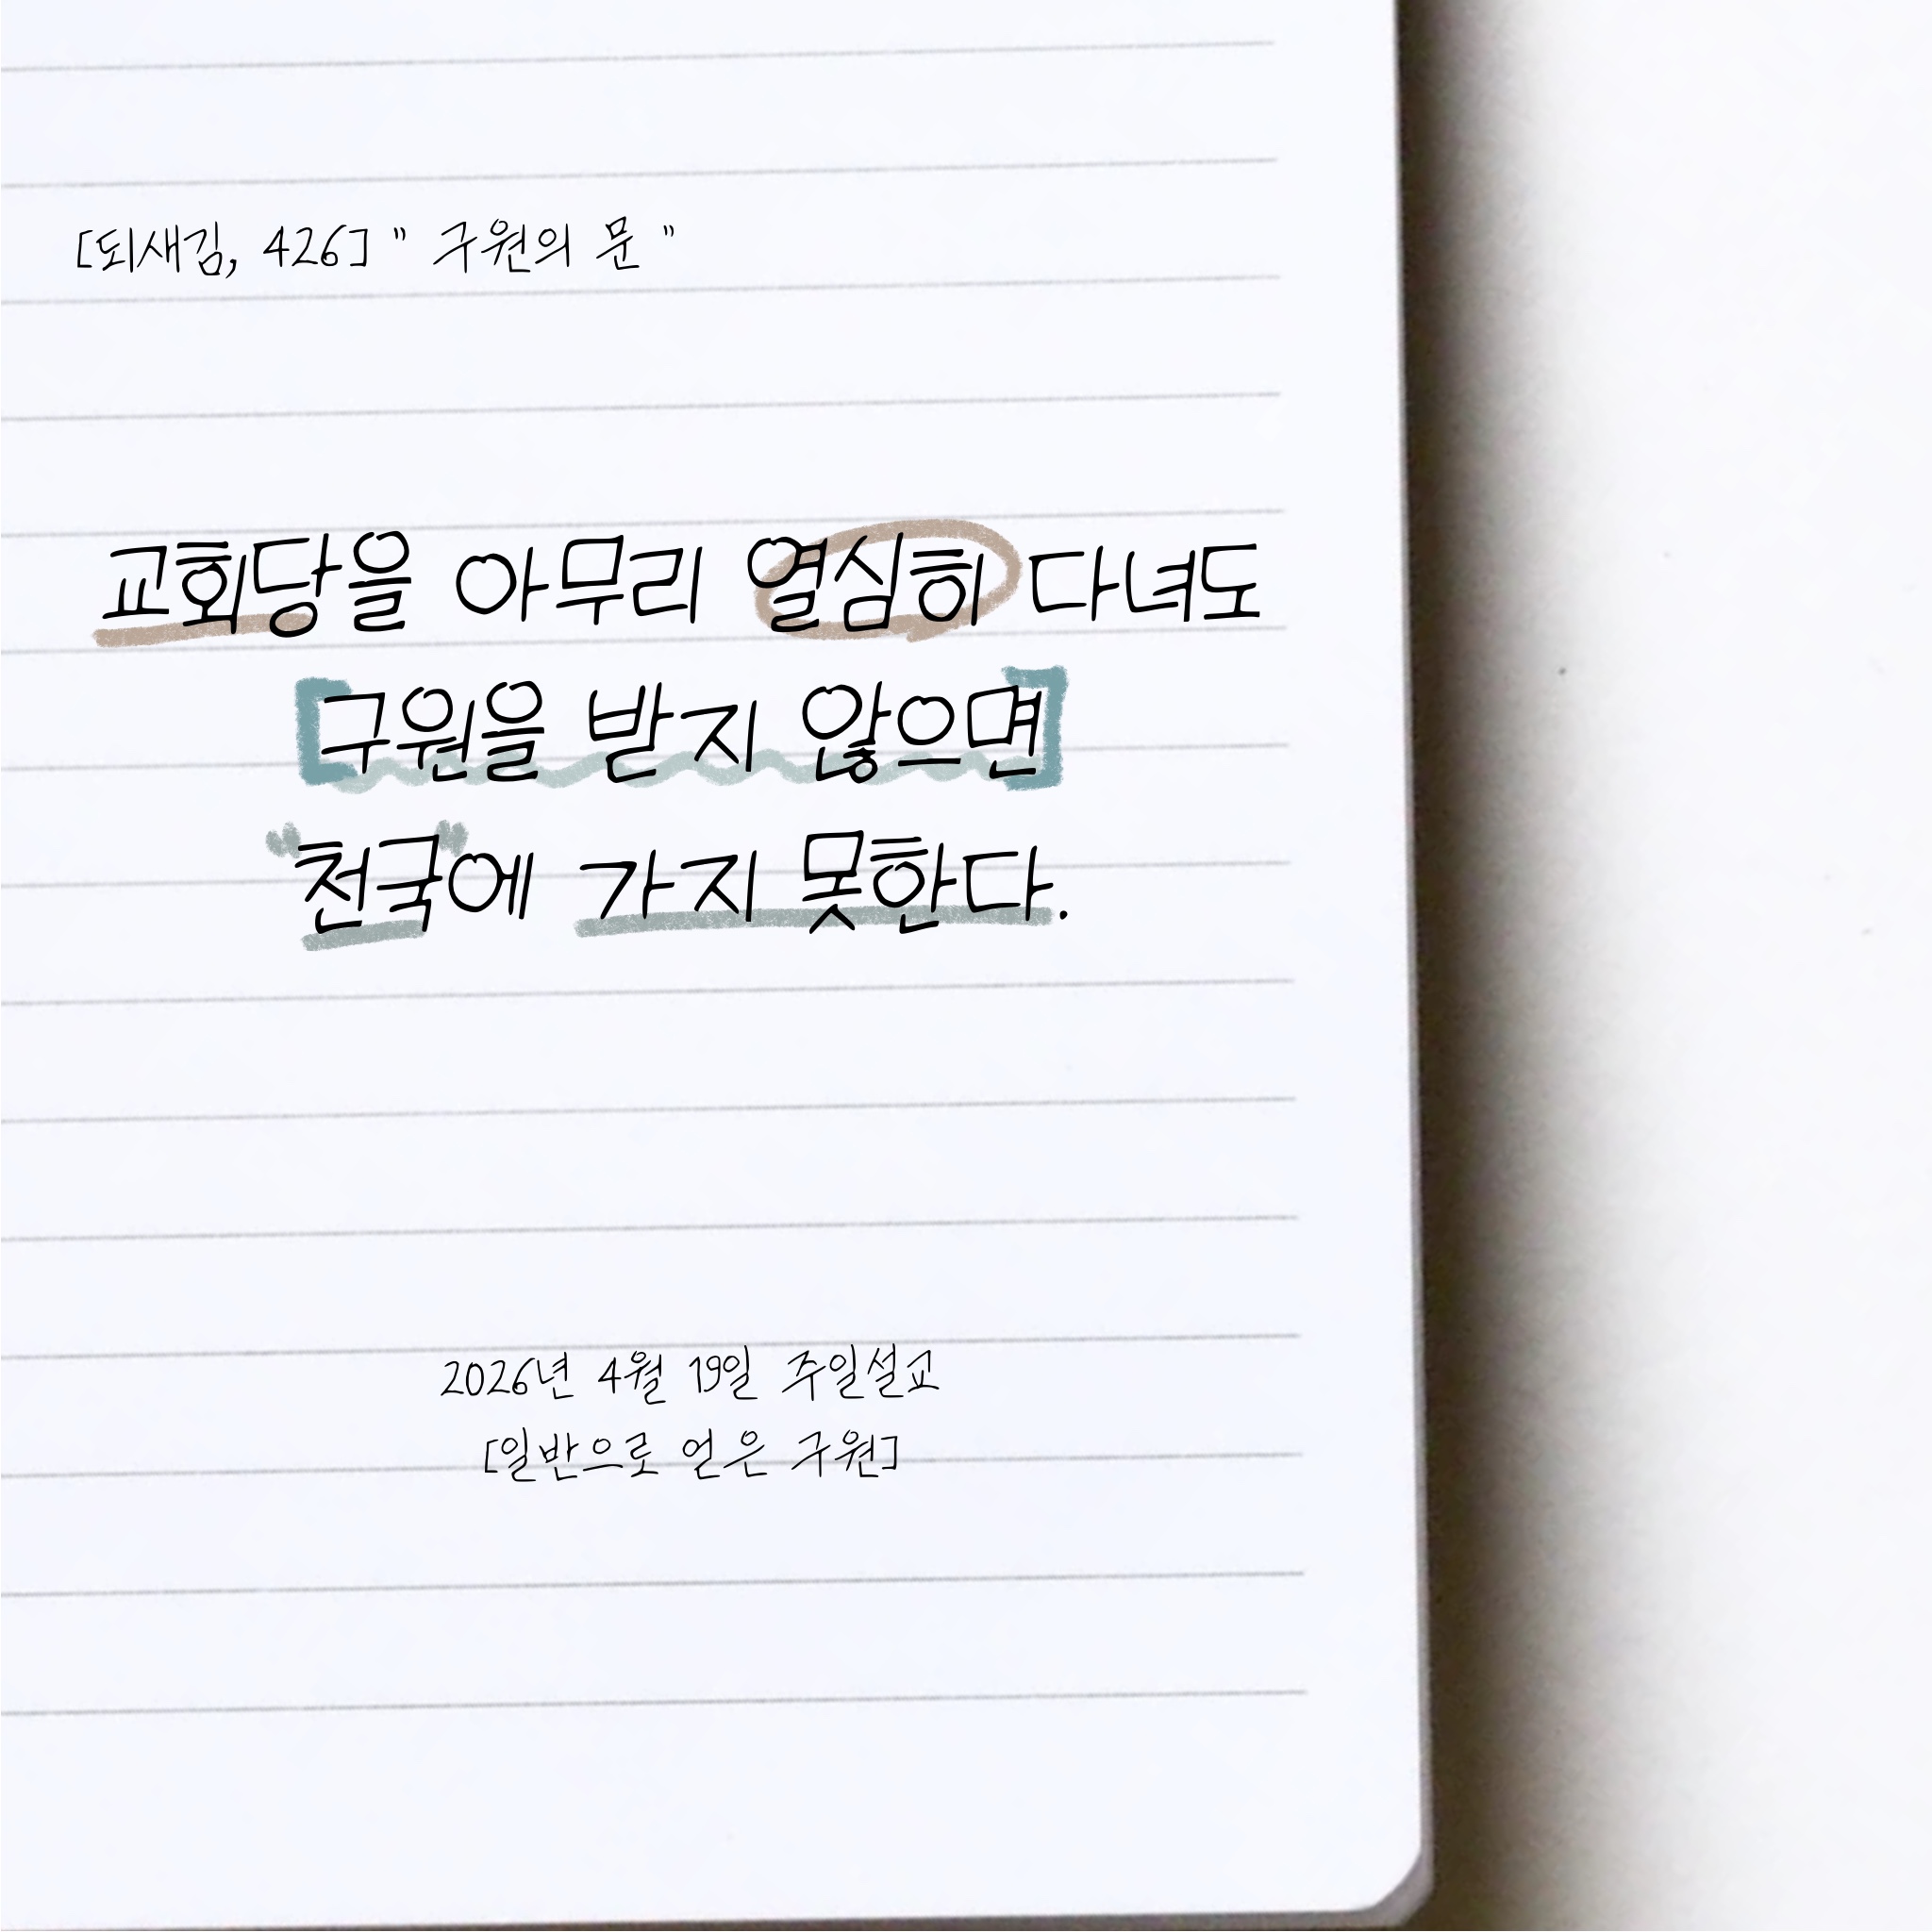 [되새김, 426] " 구원의 문 "
교회당을 아무리 열심히 다녀도
[구원을 받지 않으면]
"천국"에 가지 못한다.
2026년 4월 19일 주일설교
[일반으로 얻은 구원]